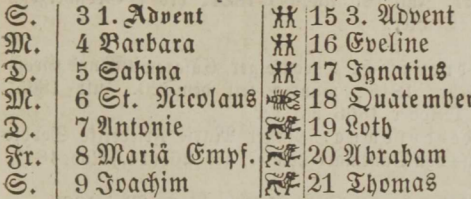 S. 3 1. Advent 15 3. Advent
M. 4 Barbara 16 Eveline
D. 5 Sabina 17 Ignatius
M. 6 St. Nicolaus 18 Quatember
D. 7 Antonie 19 Loth
Fr. 8 Mariä Empf. 20 Abraham
S. 9 Joachim 21 Thomas